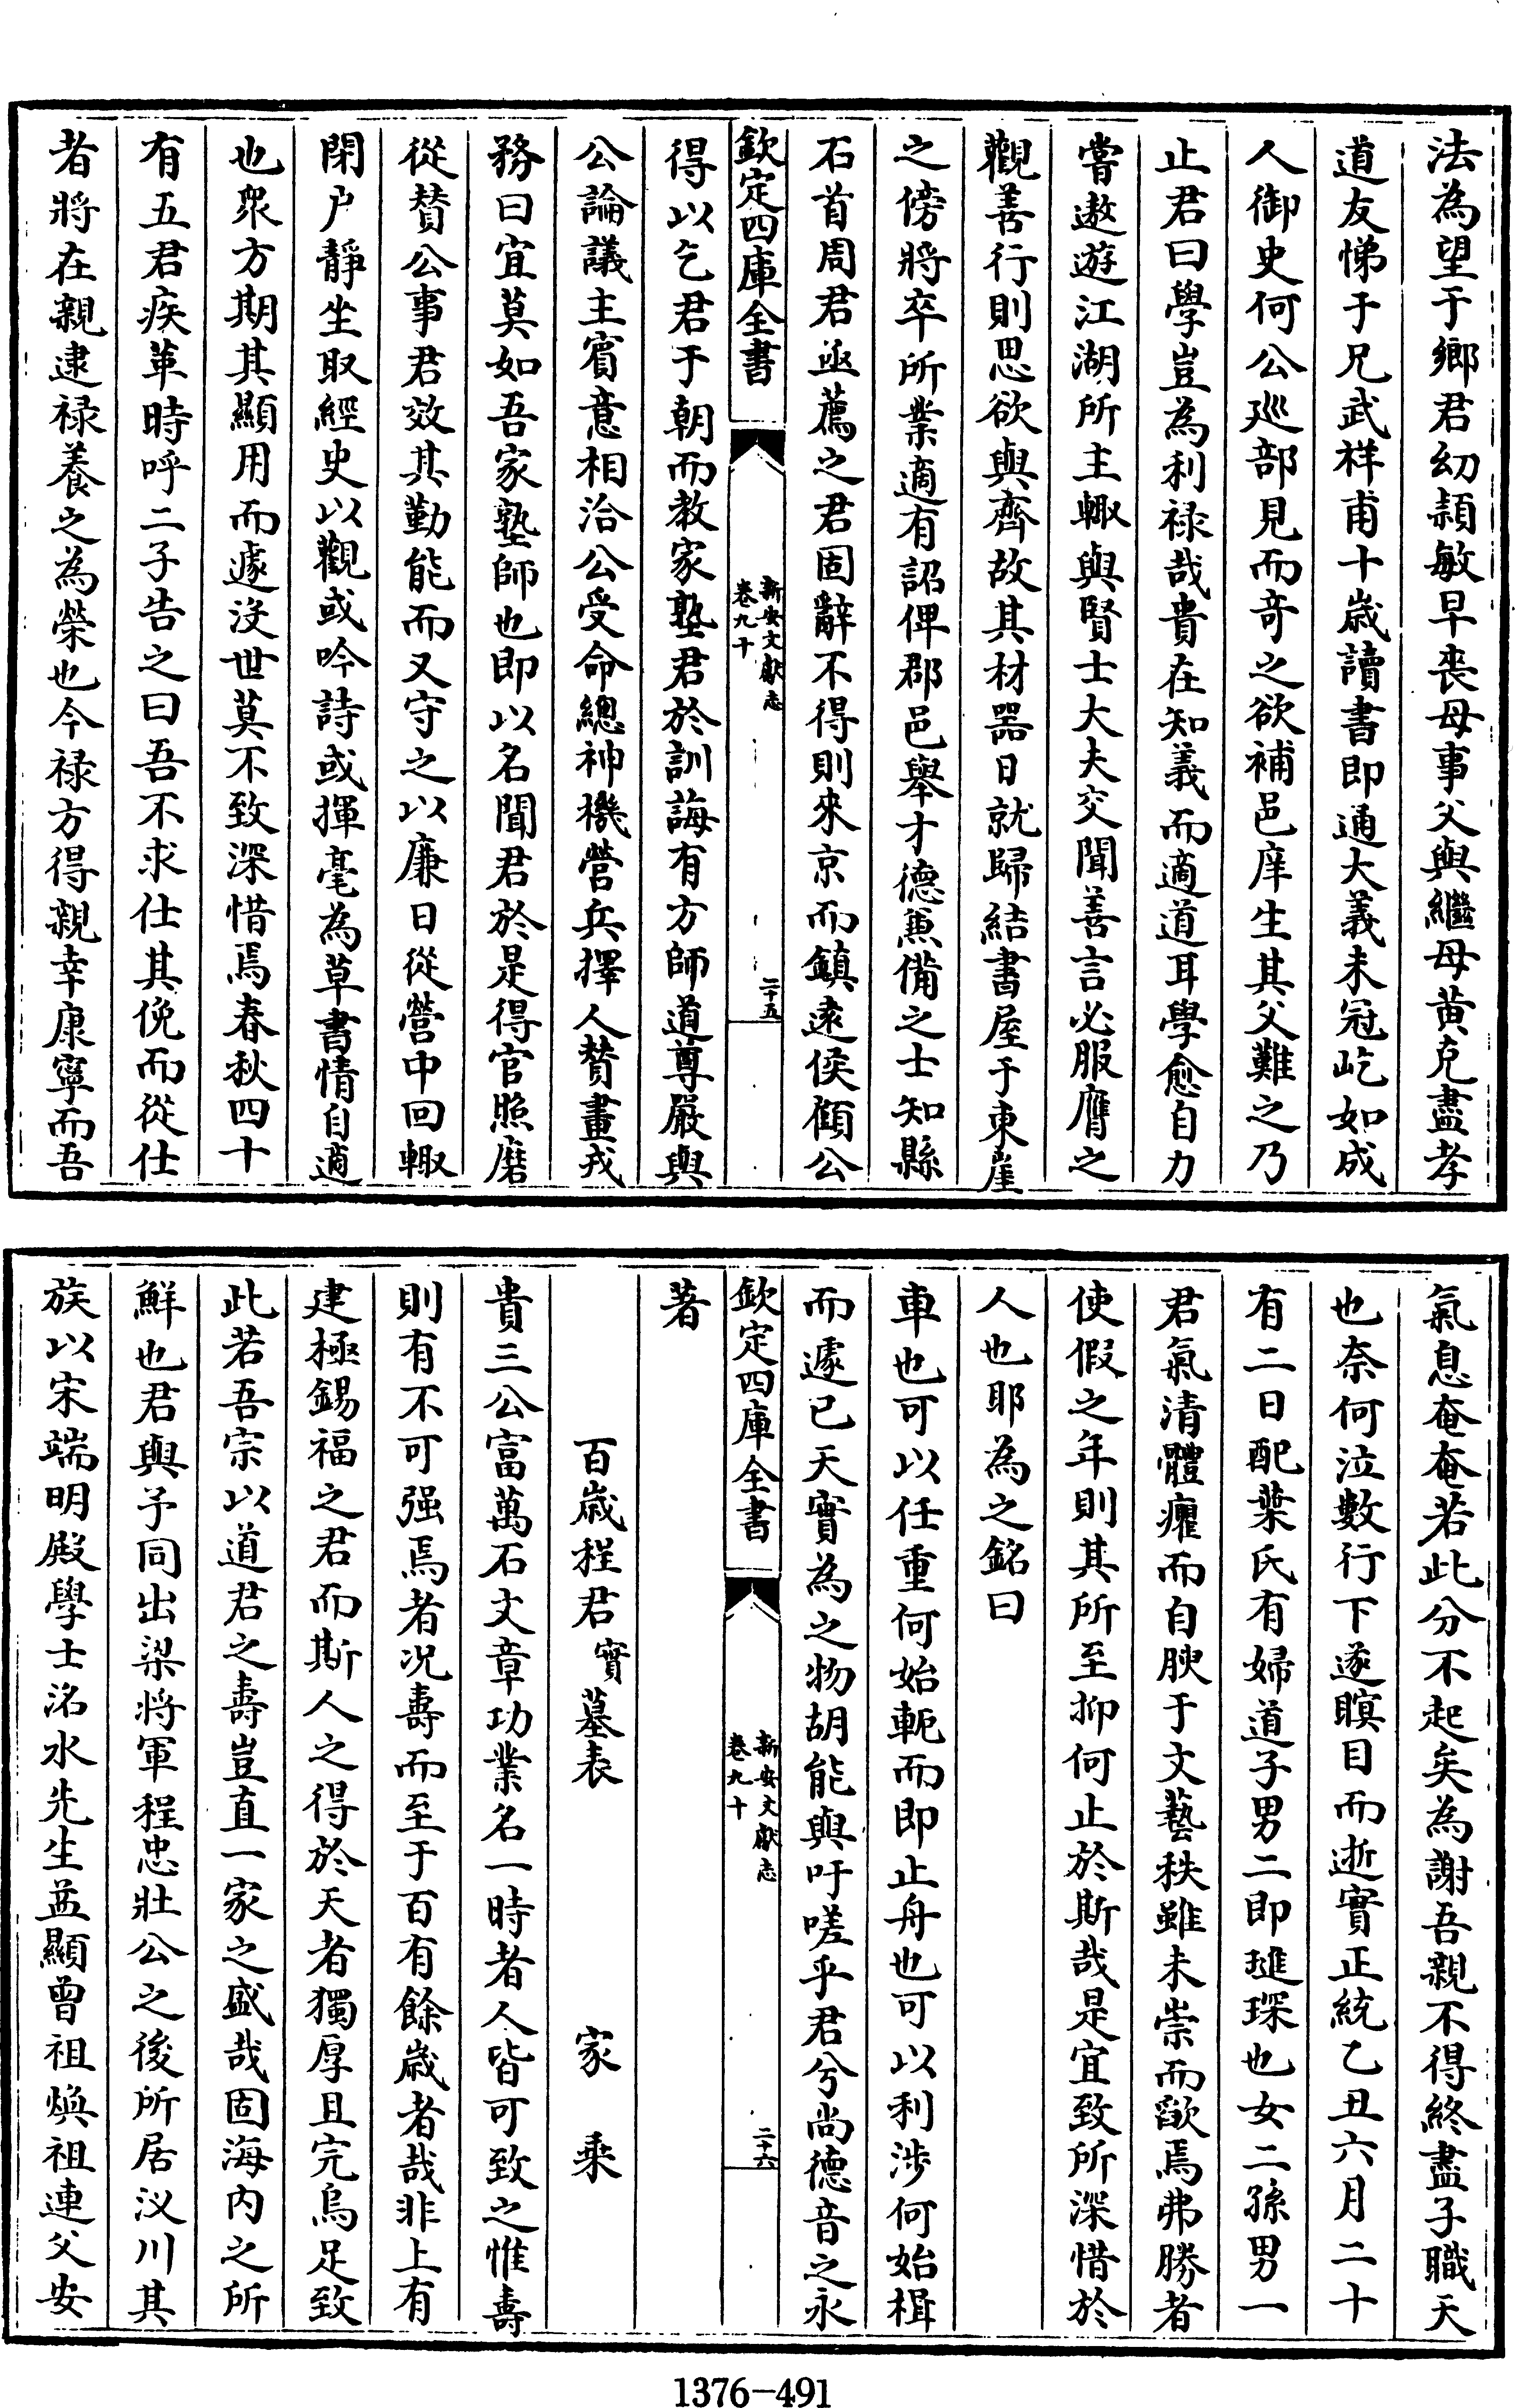 法為望于鄉君幼頴敏早喪母事父與繼母黄克盡孝
道友悌于兄武祥甫十歳讀書即通大義未冠屹如成
人御史何公廵部見而奇之欲補邑庠生其父難之乃
止君曰學豈為利禄哉貴在知義而適道耳學愈自力
嘗遨遊江湖所主輙與賢士大夫交聞善言必服膺之
觀善行則思欲與齊故其材器日就歸結書屋于東崖
之傍將卒所業適有詔俾郡邑舉才德兼備之士知縣
石首周君亟薦之君固辭不得則來京而鎮逺侯顧公
欽定四庫全書
新安文獻志
卷九十
二十五
得以乞君于朝而教家塾君於訓誨有方師道尊嚴與
公論議主賓意相洽公受命總神機營兵擇人贊畫戎
務曰宜莫如吾家塾師也即以名聞君於是得官照磨
從贊公事君效其勤能而又守之以廉日從營中回輙
閉户靜坐取經史以觀或吟詩或揮毫為草書情自適
也衆方期其顯用而遽沒世莫不致深惜焉春秋四十
有五君疾革時呼二子告之曰吾不求仕其俛而從仕
者將在親逮禄養之為榮也今禄方得親幸康寧而吾
氣息奄奄若此分不起矣為謝吾親不得終盡子職天
也奈何泣數行下遂瞑目而逝實正統乙丑六月二十
有二日配葉氏有婦道子男二即璡琛也女二孫男一
君氣清體癯而自腴于文藝秩雖未崇而歘焉弗勝者
使假之年則其所至抑何止於斯哉是宜致所深惜於
人也耶為之銘曰
車也可以任重何始軛而即止舟也可以利涉何始楫
而遽已天實為之物胡能與吁嗟乎君兮尚德音之永
欽定四庫全書
新安文獻志
卷九十
二十六
著
百歳程君實墓表 家乗
貴三公富萬石文章功業名一時者人皆可致之惟壽
則有不可强焉者况壽而至于百有餘歳者哉非上有
建極錫福之君而斯人之得於天者獨厚且完烏足致
此若吾宗以道君之壽豈直一家之盛哉固海内之所
鮮也君與予同出梁將軍程忠壯公之後所居汊川其
族以宋端明殿學士洺水先生益顯曾祖煥祖連父安
1376-491